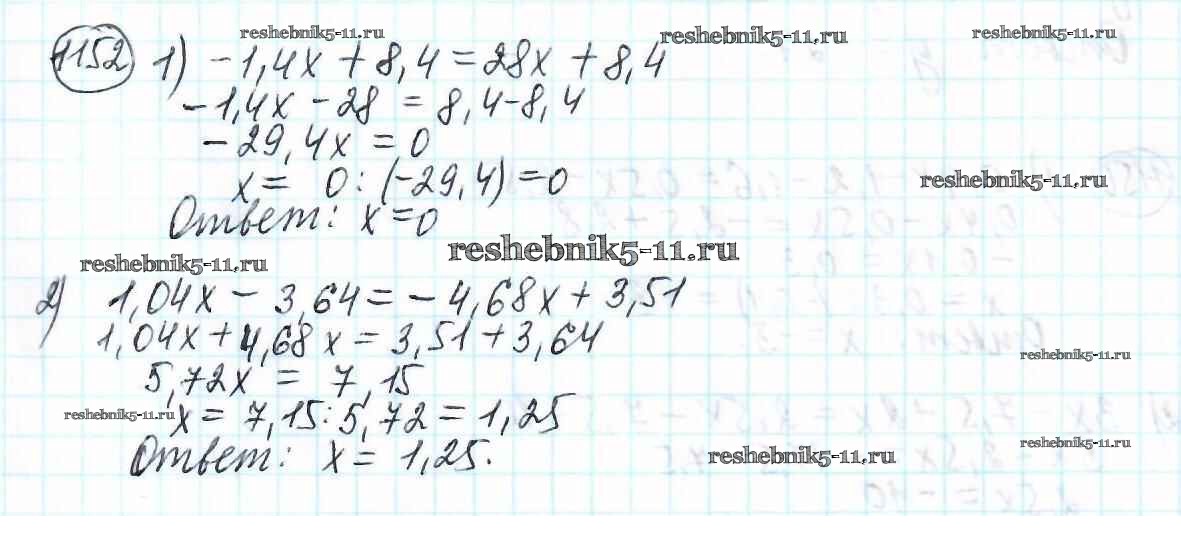 reshebnik5-11.ru reshebnik5-11.ru reshebnik5-11.ru
1152 1) -1,4x + 8,4 = 28x + 8,4
-1,4x - 28 = 8,4-8,4
-29,4x = 0
x = 0 : (-29,4) = 0
reshebnik5-11.ru
Ответ: x=0
reshebnik5-11.ru
reshebnik5-11.ru
2) 1,04x - 3,64 = - 4,68x + 3,51
1,04x + 4,68x = 3,51 + 3,64
reshebnik5-11.ru
5,72x = 7,15
reshebnik5-11.ru
x = 7,15 : 5,72 = 1,25
reshebnik5-11.ru
Ответ: x = 1,25.
reshebnik5-11.ru